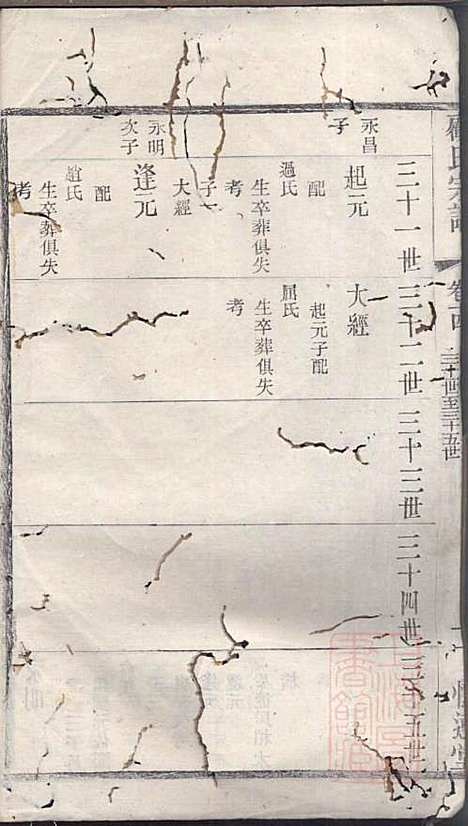 氏宗譜
卷四
三十一世至三十五世
三十一世
三十二世
三十三世
三十四世
三十五世
永昌
子
起元
配
過氏
生卒葬俱失
考
子一
大經
永明
次子
逢元
配
趙氏
生卒葬俱失
考
大經
起元子配
屈氏
生卒葬俱失
考